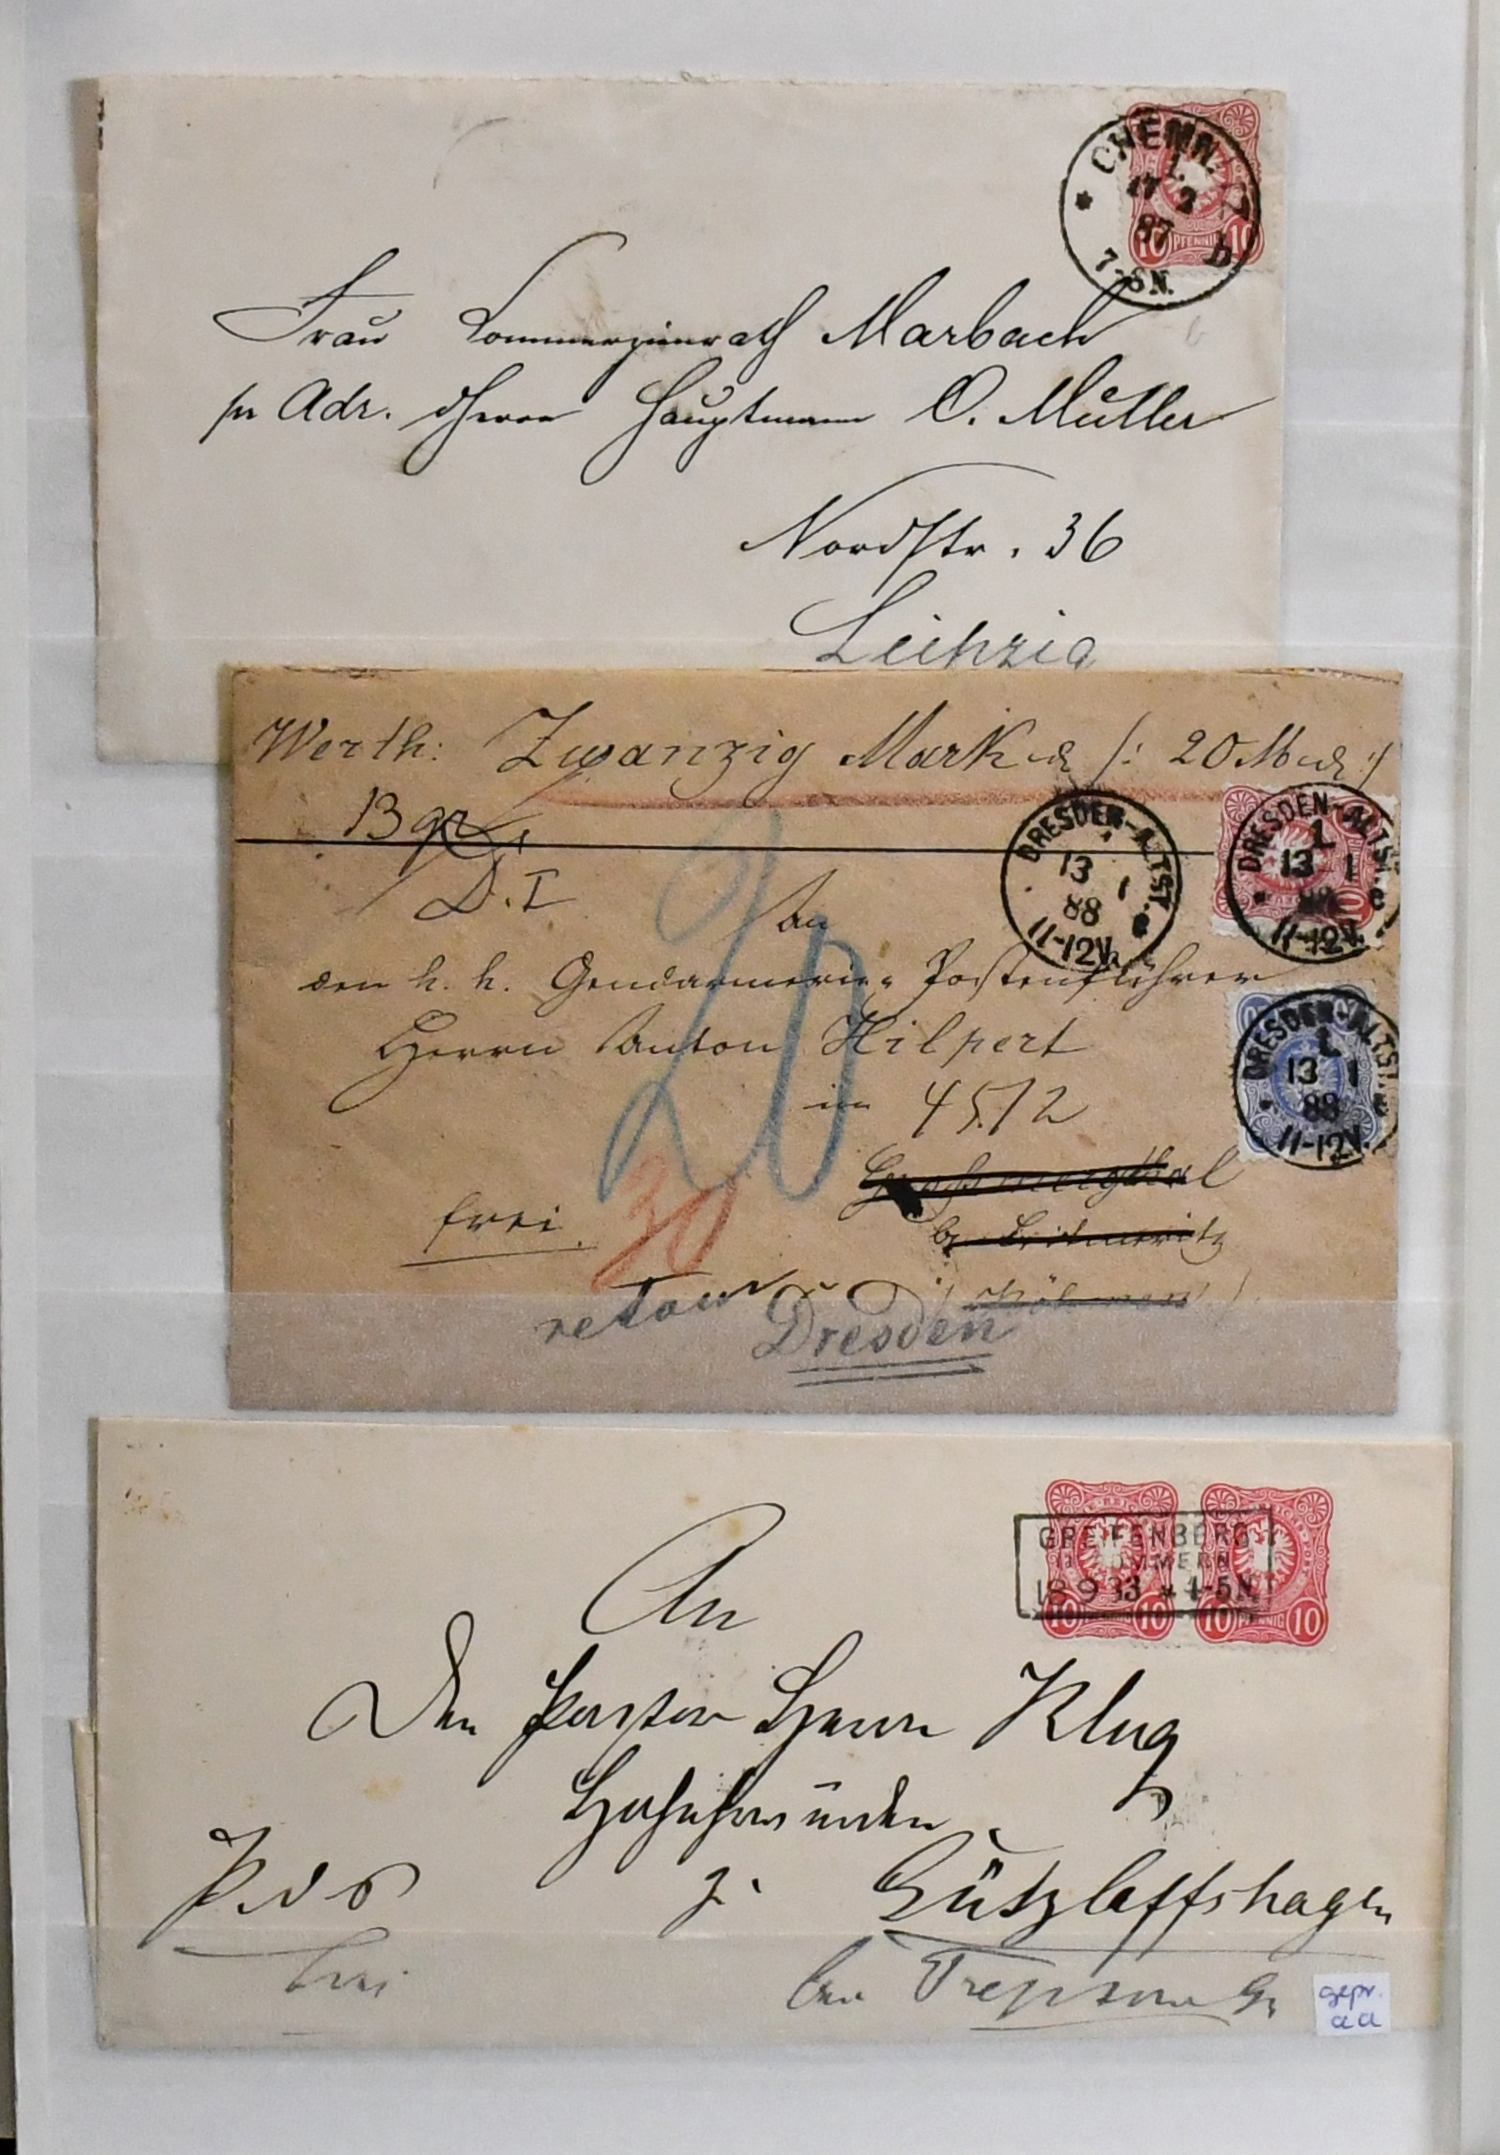 CHEMNITZ
1.
17 2
87 b
7-8N.
10 PFENNIG 10
Frau Commerzienrath Marbach
pr Adr. Herrn Hauptmann O. Müller
Nordstr. 36
Leipzig
Werth: Zwanzig Mark /: 20 M :/
13 gr
D. I
An
den k. k. Gendarmerie-Postenführer
Herrn Anton Hilpert
in 4572
bei Leitmeritz
frei
20
30
retour Dresden
DRESDEN-ALTST.
1
13 1
88 e
11-12V.
DRESDEN-ALTST.
1
13 1
88 e
11-12V.
10
DRESDEN-ALTST.
1.
13 1
88 e
11-12V.
GREIFENBERG
POMMERN
18 9 83 * 4-5N
10 10 10 PFENNIG 10
An
den Pastor Herrn Klug
Hochehrwürden
P. d. S.
z. Gützlaffshagen
frei
bei Treptow
gepr.
aa